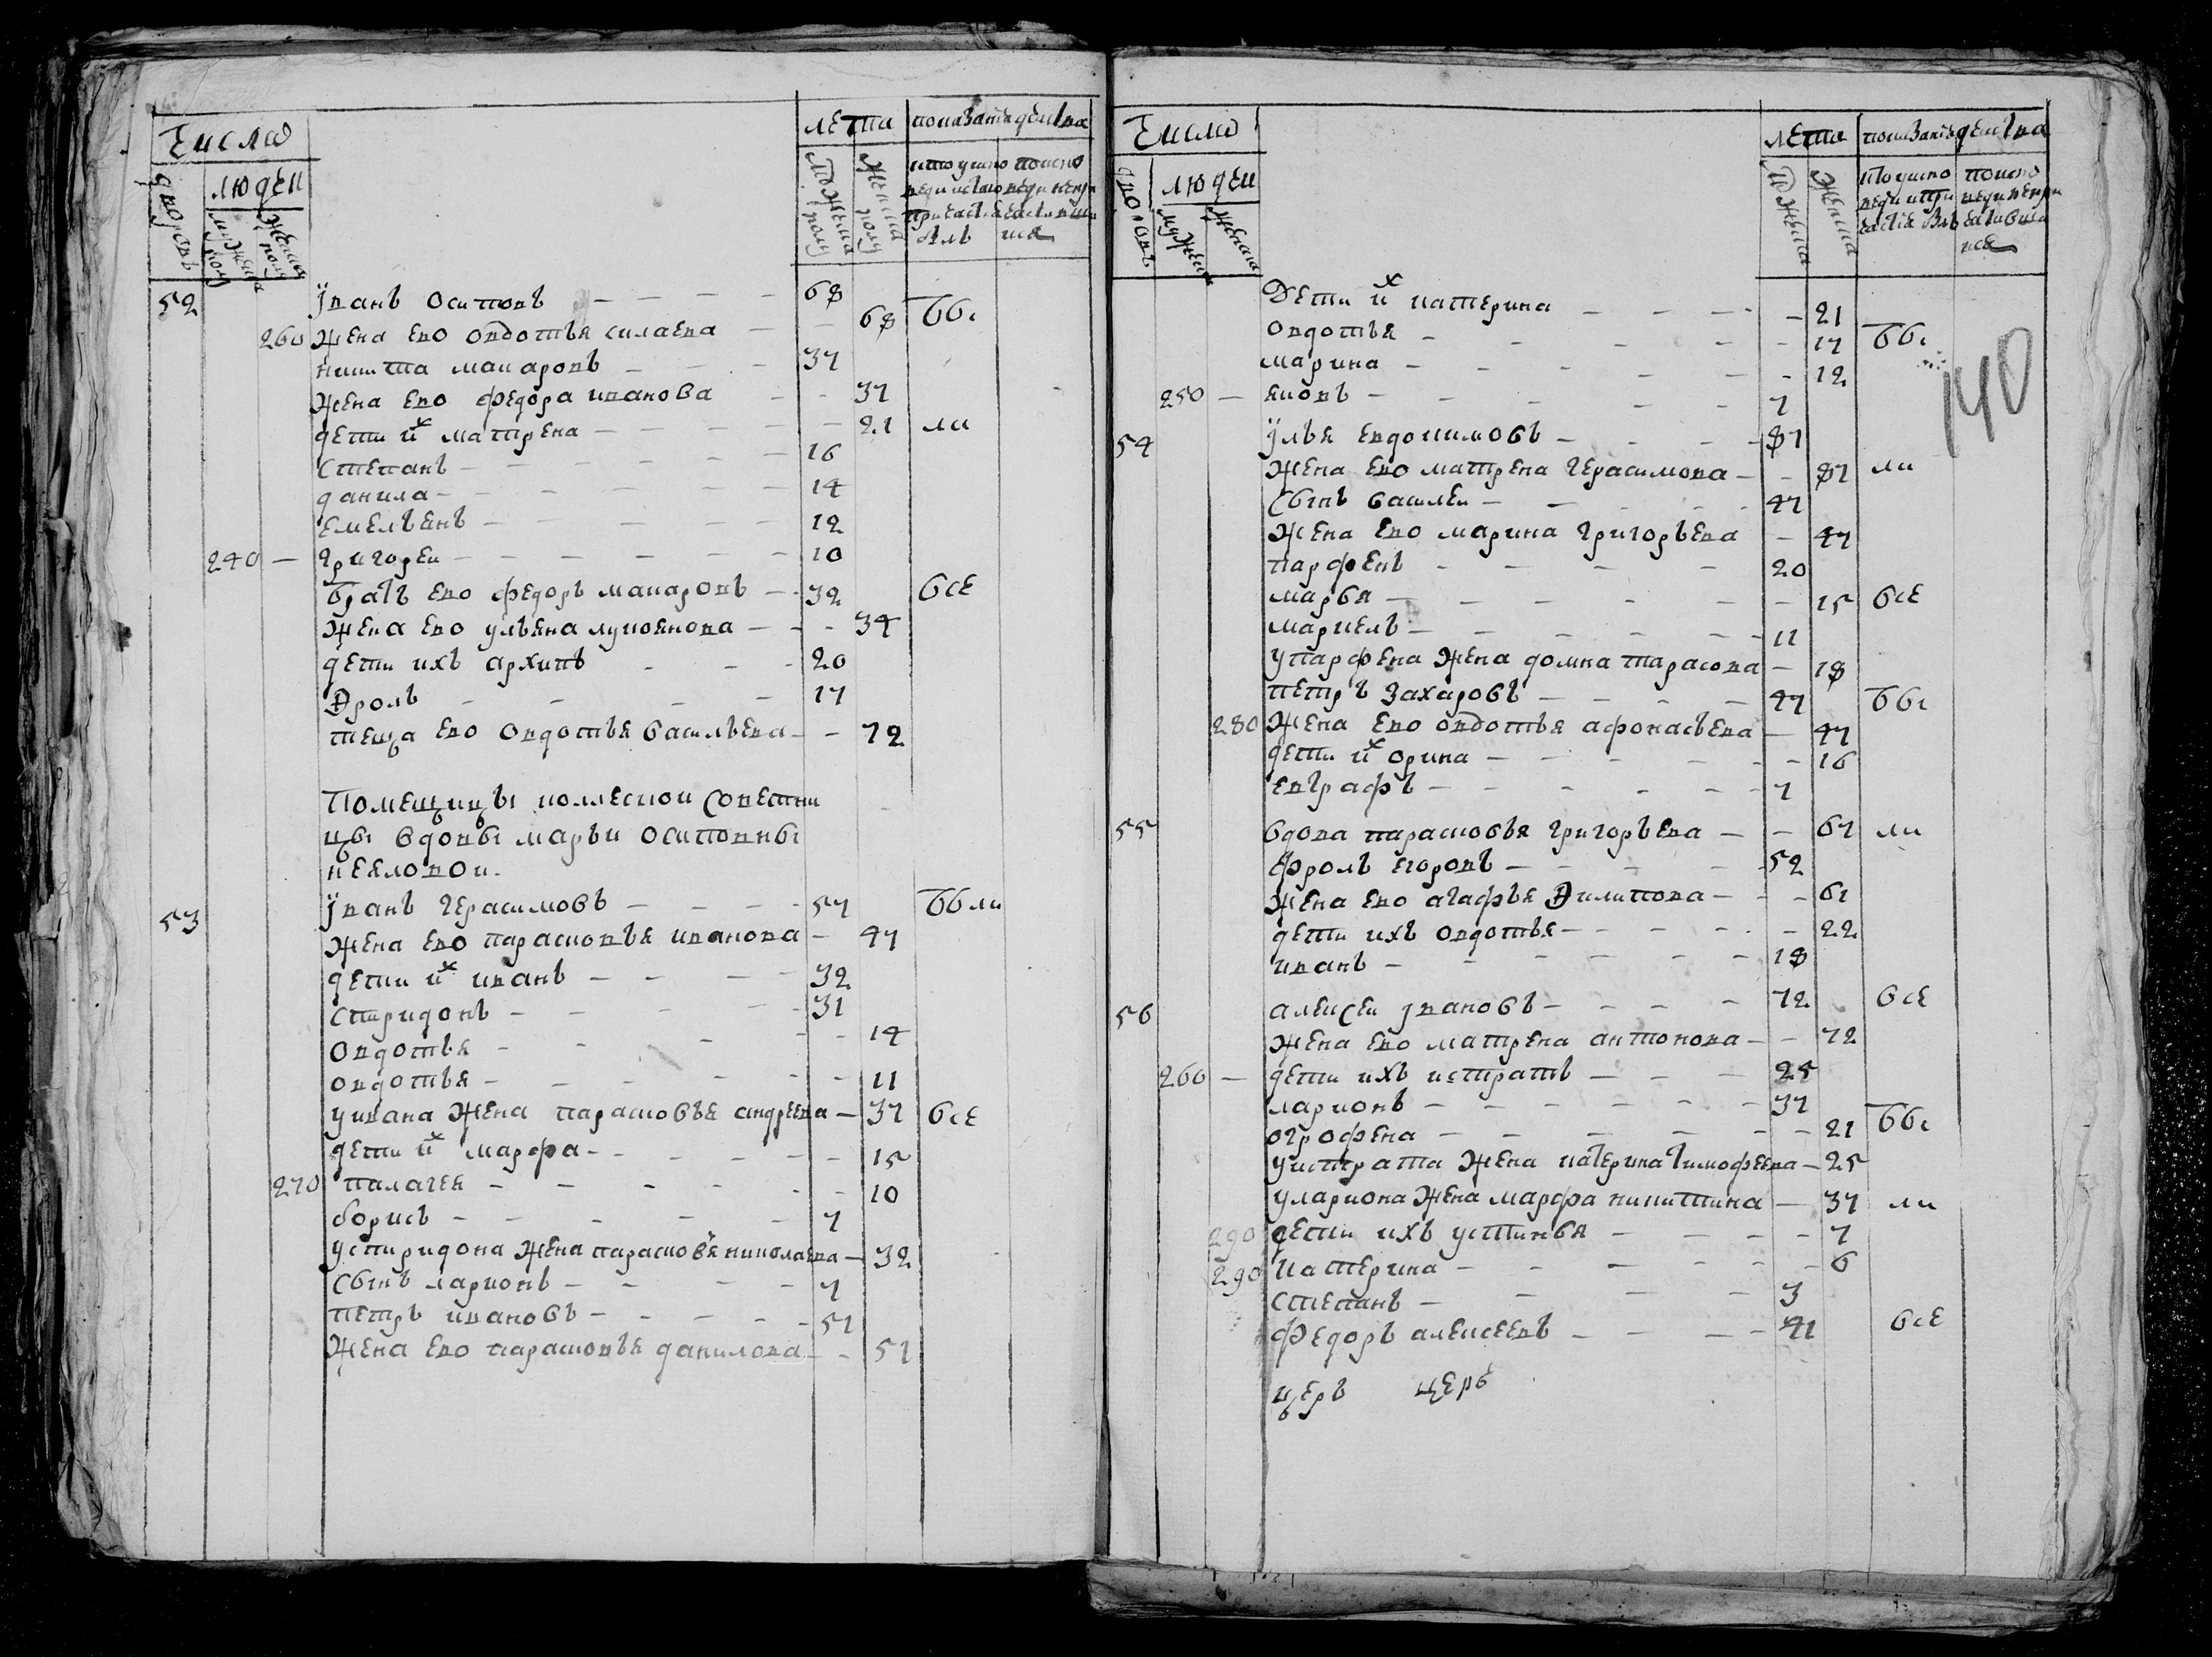 Число
лета
показание действа
дворовъ
людеи
мужеска полу
женска полу
52 Iванъ Осиповъ 68
260 Жена ево овдотья силаева 68 Бы
никита макаровъ 37
Жена ево федора иванова 37
дети их матрена 21 ли
Степанъ 16
данила 14
емельянъ 12
240 григореи 10
братъ ево федоръ макаровъ 32 все
Жена ево ульяна лукоянова 34
дети ихъ архипъ 20
Ѳролъ 17
теща ево овдотья васильева 72
Помещицы коллескои Советни
цы вдовы марьи осиповны
неяловои
53 Iванъ герасимовъ 57 Были
Жена ево парасковья иванова 47
дети их иванъ 32
Спиридонъ 31
Овдотья 14
овдотья 11
у ивана Жена парасковья андреева 37 все
дети их марфа 15
270 палагея 10
борисъ 7
у спиридона Жена парасковья николаева 32
Сынъ ларионъ 7
петръ ивановъ 51
Жена ево парасковья данилова 51
Число
лета
показание действа
дворовъ
людеи
мужеска
женска
Дети их катерина 21
Овдотья 17 Бы
марина 12
140
250 яковъ 7
54 Iлья евдокимовъ 87
Жена ево матрена герасимова 87 ли
Сынъ василеи 47
Жена ево марина григорьева 47
парфенъ 20
марья 15 все
маркелъ 11
у парфена Жена домна тарасова 18
петръ захаровъ 47 Бы
280 Жена ево овдотья афонасьева 47
дети их орина 16
евграфъ 7
55 вдова парасковья григорьева 67 ли
фролъ егоровъ 52
Жена ево агафья Ѳилипова 61
дети ихъ овдотья 22
иванъ 18
56 алексеи Iвановъ 72 все
Жена ево матрена антонова 72
260 дети ихъ истратъ 25
ларионъ 37
огрофена 21 Бы
у истрата Жена катерина тимофеева 25
у лариона Жена марфа никитина 37 ли
290 дети ихъ устинья 7
290 Катерина 6
степанъ 3
федоръ алексеевъ 41 все
церъ церъ